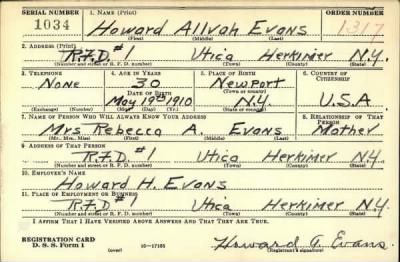 SERIAL NUMBER 1. NAME (Print) ORDER NUMBER
1034 Howard Allvah Evans 1317
(First) (Middle) (Last)
2. ADDRESS (Print)
R.F.D #1 Utica Herkimer N.Y.
(Number and street or R. F. D. number) (Town) (County) (State)
3. TELEPHONE 4. AGE IN YEARS 5. PLACE OF BIRTH 6. COUNTRY OF CITIZENSHIP
None 30 Newport
DATE OF BIRTH (Town or county)
May 19th 1910 N.Y. U.S.A.
(Exchange) (Number) (Mo.) (Day) (Yr.) (State or country)
7. NAME OF PERSON WHO WILL ALWAYS KNOW YOUR ADDRESS 8. RELATIONSHIP OF THAT PERSON
Mrs Rebecca A. Evans Mother
(Mr., Mrs., Miss) (First) (Middle) (Last)
9. ADDRESS OF THAT PERSON
R.F.D #1 Utica Herkimer N.Y.
(Number and street or R. F. D. number) (Town) (County) (State)
10. EMPLOYER'S NAME
Howard H. Evans
11. PLACE OF EMPLOYMENT OR BUSINESS
R.F.D #1 Utica Herkimer N.Y.
(Number and street or R. F. D. number) (Town) (County) (State)
I AFFIRM THAT I HAVE VERIFIED ABOVE ANSWERS AND THAT THEY ARE TRUE.
REGISTRATION CARD
D. S. S. Form 1 (over) 16-17105 Howard A. Evans
(Registrant's signature)